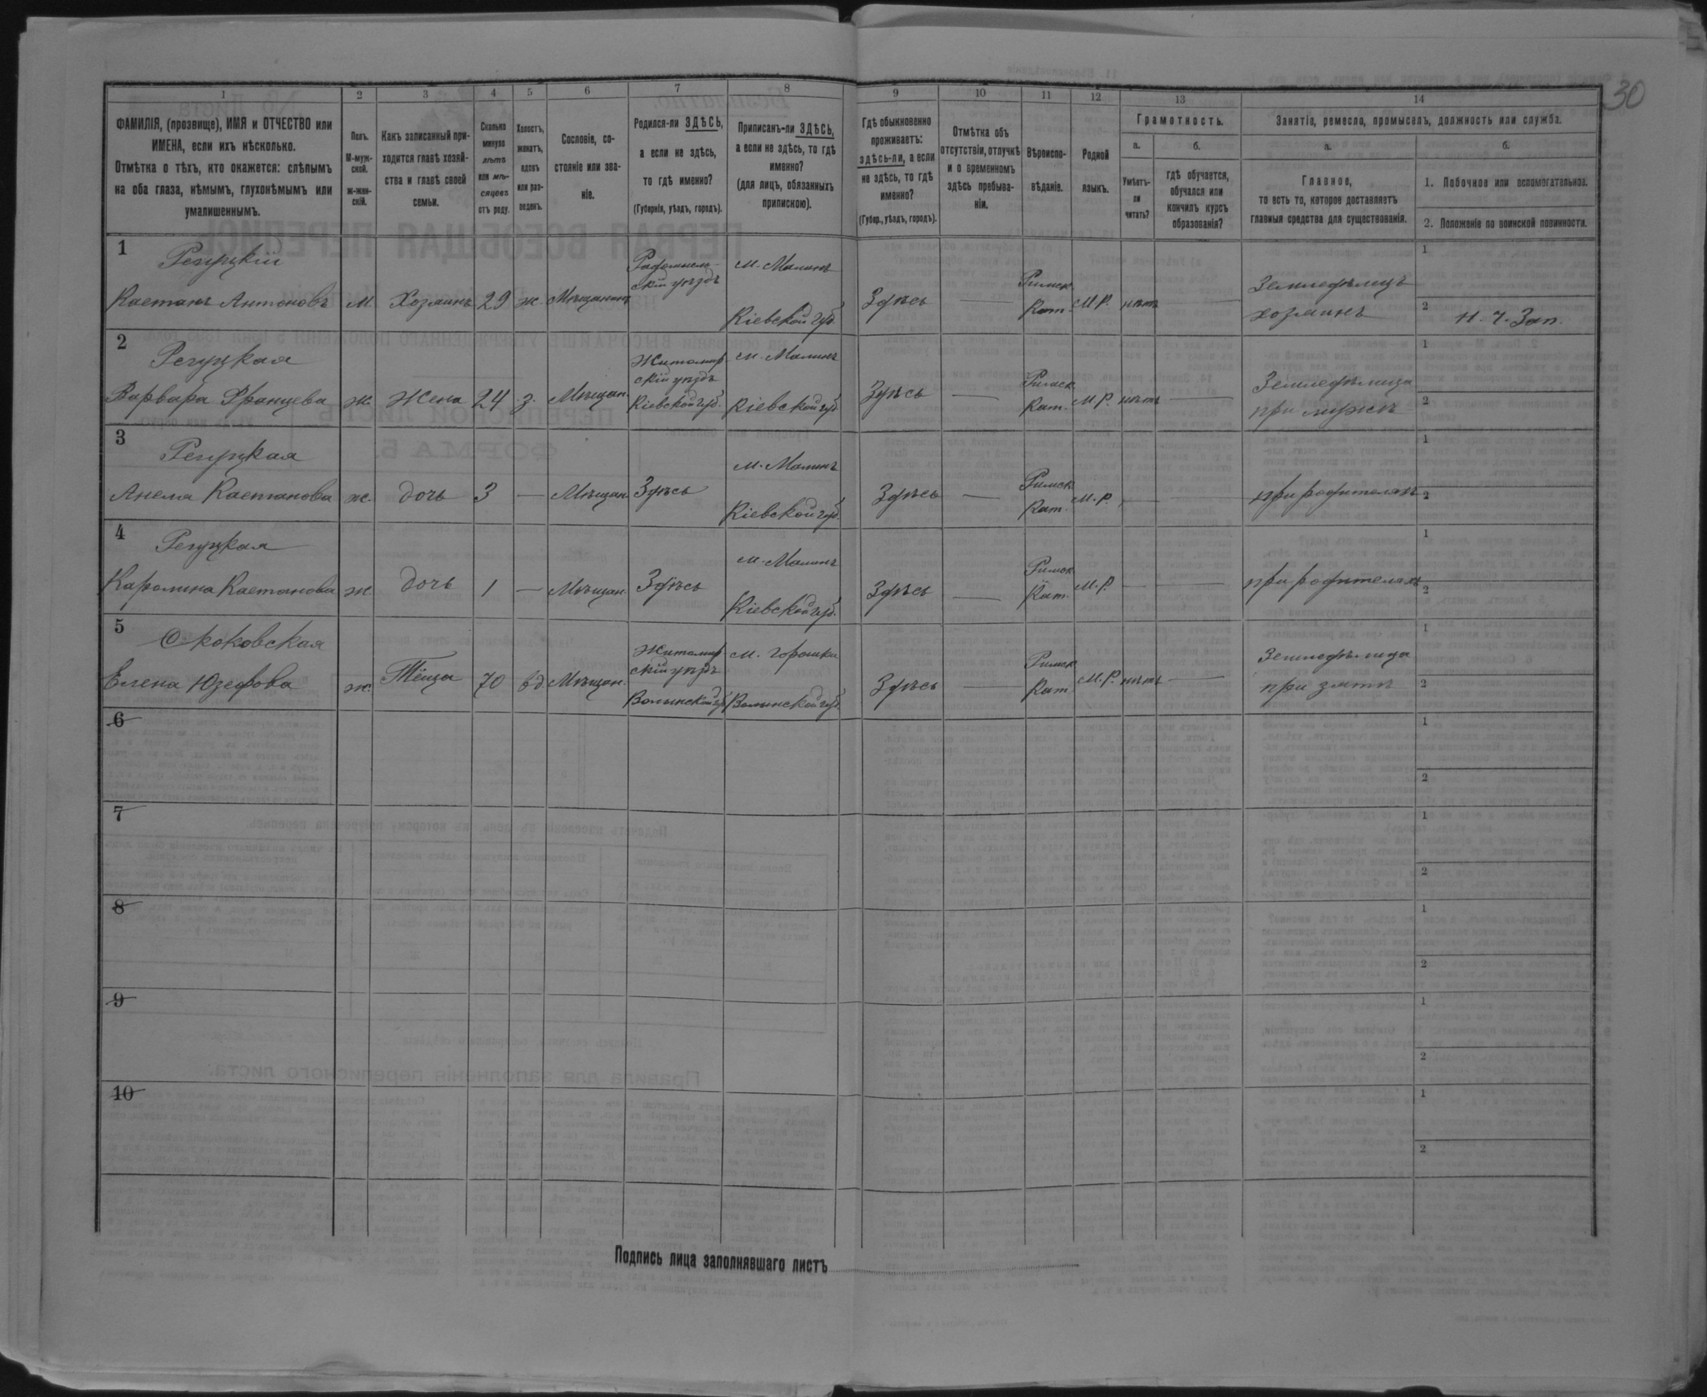 30
1 2 3 4 5 6 7 8 9 10 11 12 13 14
ФАМИЛІЯ, (прозвище), ИМЯ и ОТЧЕСТВО или
ИМЕНА, если ихъ нѣсколько.
Отмѣтка о тѣхъ, кто окажется: слѣпымъ
на оба глаза, нѣмымъ, глухонѣмымъ или
умалишеннымъ.
Полъ.
М-муж-
ской.
ж-жен-
скій.
Какъ записанный при-
ходится главѣ хозяй-
ства и главѣ своей
семьи.
Сколько
минуло
лѣтъ
или мѣ-
сяцевъ
отъ роду.
Холостъ,
женатъ,
вдовъ
или раз-
веденъ.
Сословіе, со-
стояніе или зва-
ніе.
Родился-ли ЗДѢСЬ,
а если не здѣсь,
то гдѣ именно?
(Губернія, уѣздъ, городъ).
Приписанъ-ли ЗДѢСЬ,
а если не здѣсь, то гдѣ
именно?
(для лицъ, обязанныхъ
припискою).
Гдѣ обыкновенно
проживаетъ:
здѣсь-ли, а если
не здѣсь, то гдѣ
именно?
(Губер., уѣздъ, городъ).
Отмѣтка объ
отсутствіи, отлучкѣ
и о временномъ
здѣсь пребыва-
ніи.
Вѣроиспо-
вѣданіе.
Родной
языкъ.
Грамотность.
а.
Умѣетъ-
ли
читать?
б.
гдѣ обучается,
обучался или
кончилъ курсъ
образованія?
Занятіе, ремесло, промыселъ, должность или служба.
а.
Главное,
то есть то, которое доставляетъ
главныя средства для существованія.
б.
1. Побочное или вспомогательное.
2. Положеніе по воинской повинности.
1
Регуцкій
Каетанъ Антоновъ м Хозяинъ 29 ж. Мѣщанинъ
Радомысль-
скій уѣздъ
м. Малинъ
Кіевской губ.
Здѣсь —
Римск
Кат. М.Р. нѣтъ —
Земледѣлецъ
хозяинъ
1
2 Н. Ч. Зап.
2
Регуцкая
Варвара Францева ж Жена 24 з. Мѣщан.
Житомир
скій уѣздъ
Кіевской губ.
м. Малинъ
Кіевской губ
Здѣсь —
Римск
Кат. М.Р. нѣтъ —
Земледѣлица
при мужѣ
1
2
3
Регуцкая
Анеля Каетанова ж. дочь 3 — Мѣщан. Здѣсь
м. Малинъ
Кіевской губ.
Здѣсь —
Римск
Кат. М.Р. — —
при родителяхъ
1
2
4
Регуцкая
Каролина Каетанова ж дочь 1 — Мѣщан. Здѣсь
м. Малинъ
Кіевской губ.
Здѣсь —
Римск
Кат. М.Р. — —
при родителяхъ
1
2
5
Елена Юзефова ж. Тёща 70 вд. Мѣщан.
Житомир
скій уѣздъ
Волынской губ
м. Горошки
Волынской губ.
Здѣсь —
Римск
Кат М.Р. нѣтъ —
Земледѣлица
при зятѣ
1
2
6
1
2
7
1
2
8
1
2
9
1
2
10
1
2
Подпись лица заполнявшаго листъ